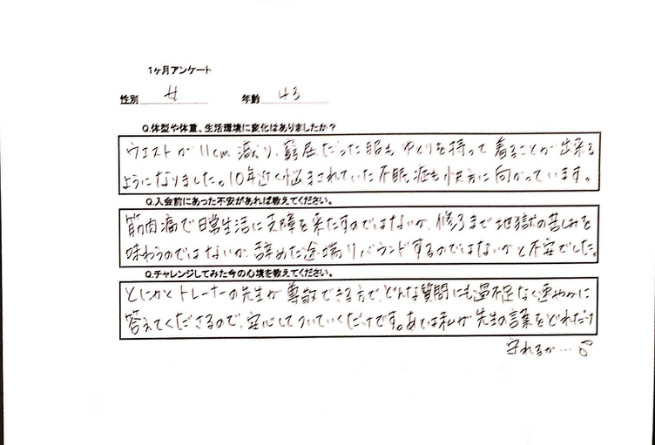 1ヶ月アンケート
性別 女 年齢 43
Q.体型や体重、生活環境に変化はありましたか？
ウエストが11cm減り、窮屈だった服もゆとりを持って着ることが出来る
ようになりました。10年近く悩まされていた不眠症も快方に向かっています。
Q.入会前にあった不安があれば教えてください。
筋肉痛で日常生活に支障を来たすのではないか、修了まで地獄の苦しみを
味わうのではないか、辞めた途端リバウンドするのではないかと不安でした。
Q.チャレンジしてみた今の心境を教えてください。
とにかくトレーナーの先生が尊敬できる方で、どんな質問にも過不足なく速やかに
答えてくださるので、安心してついていくだけです。あとは私が先生の言葉をどれだけ
守れるか…